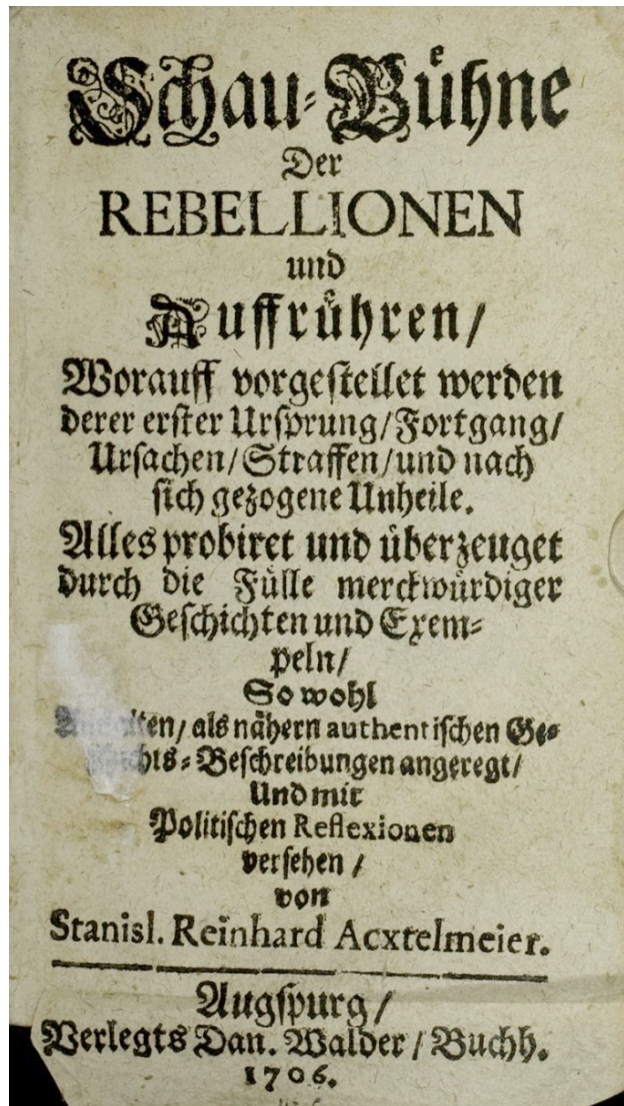 Schau-Bühne
Der
REBELLIONEN
und
Auffrühren/
Worauff vorgestellet werden
derer erster Ursprung/Fortgang/
Ursachen/Straffen/und nach
sich gezogene Unheile.
Alles probiret und überzeuget
durch die Fülle merckwürdiger
Geschichten und Exem-
peln/
So wohl
als nähern authentischen Ge-
Beschreibungen angeregt/
Und mit
Politischen Reflexionen
versehen/
von
Stanisl. Reinhard Acxtelmeier.
Augspurg/
Verlegts Dan. Walder/Buchh.
1706.